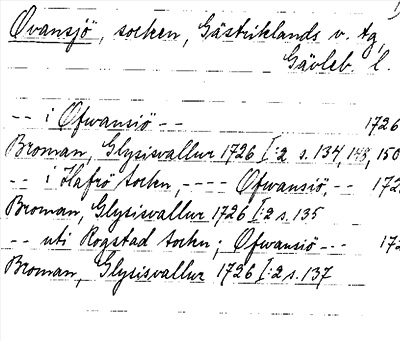 Ovansjö, socken, Gästriklands v. tg,
Gävleb. l.
-- i Ofwansiö -- 1726
Broman, Glysisvallur 1726 I:2 s. 134, 148, 150
-- i Hafrö sockn, ---- Ofwansiö, -- 172
Broman, Glysisvallur 1726 I:2 s. 135
-- uti Rogstad sockn; Ofwansiö --- 172
Broman, Glysisvallur 1726 I:2 s. 137